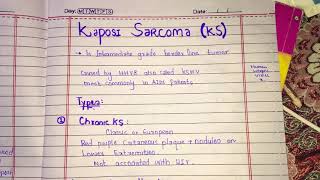 Day: M T W T F S
Date: / /
Kaposi Sarcoma (KS)
→ Is Intermediate grade border line tumor
Caused by HHV8 also called KSHV
most commonly in AIDS Patients
Human
herpes
virus
Types
① Chronic KS:
Classic or European
Red purple Cutaneous plaque + nodules on
Lower Extremities.
Not associated with HIV.